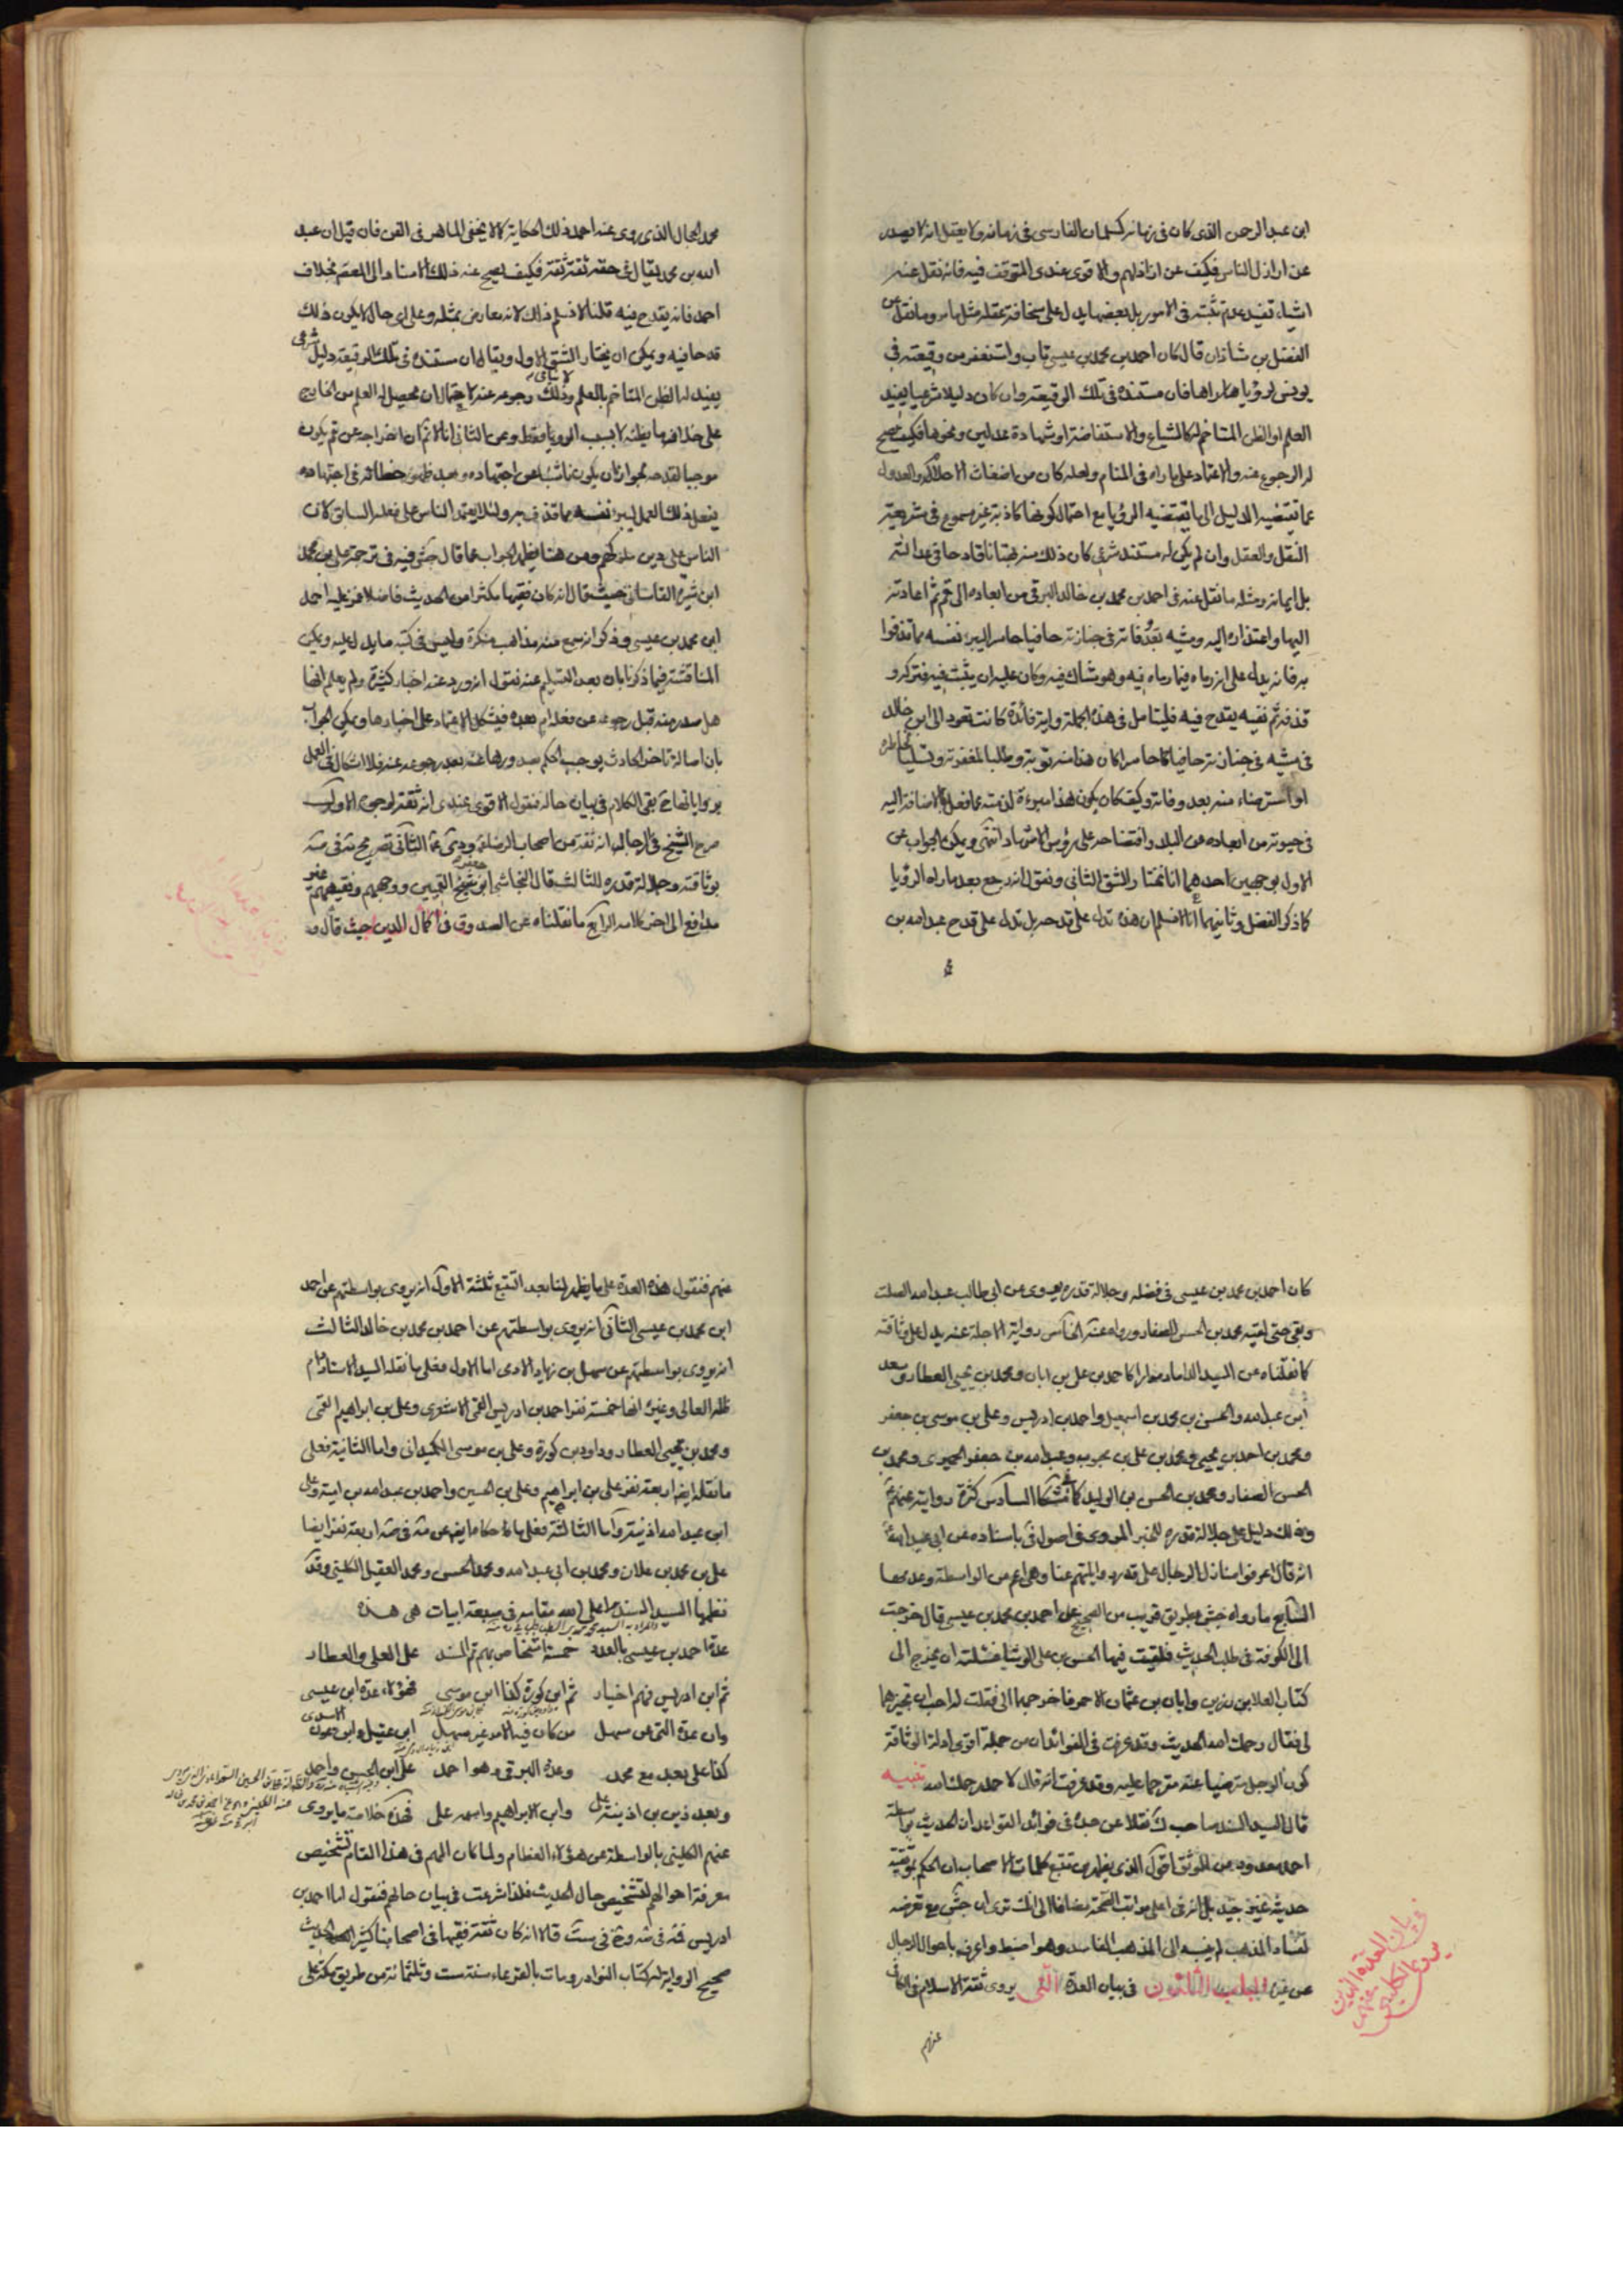 ابن عبد الرحمن الذى كان فى زمانه كسلمان الفارسى فى زمانه ولا يعقل انه لا يصدر
عن اراذل الناس فكيف عن ازاذلهم والاقوى عندى التوقف فيه فانه نقل عنه
اشياء تفيد عدم تثبته فى الامور بل بعضها يدل على سخافة عقله مثل ما مر وما نقل عن
الفضل بن شاذان قال كان احمد بن محمد بن عيسى تاب واستغفر من وقيعته فى
يونس لرؤيا راها فان مستنده فى تلك الوقيعة وان كان دليلا شرعيا يفيد
العلم او الظن المتاخم له كالشياع والاستفاضة او شهادة عدلين ونحوها فكيف يصح
له الرجوع عنه والاعتماد على ما راه فى المنام ولعله كان من اضغاث الاحلام والعدول
عما تقتضيه الدليل الى ما يقتضيه الرؤيا مع احتمال كونها كاذبة غير مسموع فى شريعة
النقل والعقل وان لم يكن له مستند شرعى كان ذلك منه بهتانا قادحا فى عدالته
بل ايمانه ومثله ما نقل عنه فى احمد بن محمد بن خالد البرقى من ابعاده الى قم ثم اعادته
اليها واعتذاره اليه ومشيه بعد وفاته فى جنازته حافيا حاسرا ليبرء نفسه مما قذفه
به فانه يدل على انه رماه فيما رماه فيه وهو شاك فيه وكان عليه ان يثبت فيه فتركه و
قذفه ثم نفيه يقدح فيه فليتامل فى هذه الجملة واية فائدة كانت تعود الى ابن خالد
فى مشيه فى جنازته حافيا كان حاسرا كان هذا منه توبة وطلبا للمغفرة وتسليا لخاطره
او استرضاء منه بعد وفاته وكيف كان يكون هذا مبرءة لذمته مما فعل بالاضافة اليه
فى حيوته من ابعاده عن البلاد وافتضاحه على رؤس الاشهاد انتهى ويمكن الجواب عن
الاول بوجهين احدهما انا نختار الشق الثانى ونقول انه رجع بعد ما راه الرؤيا
كما ذكر الفضل وثانيهما انا لا نسلم ان هذه تدل على قدحه بل تدل على قدح عبد الله بن
محمد الحجال الذى روى عنه احمد ذلك الحكاية كما لا يخفى الماهر فى الفن فان قيل ان عبد
الله بن محمد يقال فى حقه ثقة ثقة فكيف يصح عنه ذلك الاسناد الى المعصوم بخلاف
احمد فانه يقدح فيه قلنا لا نسلم ذلك لانه معارض بمثله وعلى اى حال لا يكون ذلك
قدحا فيه ويمكن ان يختار الشق الاول ويقال كان مستنده فى تلك الوقيعة دليل شرعى
يفيد له الظن المتاخم بالعلم وذلك رجوعه عنه لاحتمال ان يحصل له العلم من الخارج
على خلاف ما يظنه لا بسبب الرويا فقط وعن الثانى انا لا نم ان اخراجه عن قم يكون
موجبا لقدحه لجواز ان يكون ناشيا عن اجتهاده وبعد ظهور خطائه فى اجتهاده
يفعل ذلك العمل ليبرء نفسه مما قذف به ولئلا يعتمد الناس على فعله السابق لان
الناس على دين ملوكهم ومن هنا يظهر الجواب عما قال جش فيه فى ترجمة على بن محمد
ابن شيرة القاسانى حيث قال انه كان فقيها مكثرا من الحديث فاضلا غمز عليه احمد
ابن محمد بن عيسى وذكر انه سمع منه مذاهب منكرة وليس فى كتبه ما يدل عليه ويمكن
المناقشة فيما ذكرنا بان بعد التسليم عنه نقول انه ورد عنه اخبار كثيرة ولم يعلم انها
هل صدر منه قبل رجوعه عن فعله ام بعده فيشكل الاعتماد على اخبارها ويمكن الجواب
بان اصالة تاخر الحادث يوجب الحكم بصدورها عنه بعد رجوعه عنه فلا اشكال فى العمل
برواياتها بقى الكلام فى بيان حاله فنقول الاقوى عندى انه ثقة لوجوه الاول
صرح الشيخ فى الرجال انه ثقة من اصحاب الرضا الثانى تصريح مة فى صه
بوثاقته وجلالة قدره الثالث قال النجاشى ابو جعفر شيخ القميين ووجههم وفقيههم غير
مدافع الى اخر كلامه الرابع ما نقلناه عن الصدوق فى اكمال الدين حيث قال و
كان احمد بن محمد بن عيسى فى فضله وجلالة قدره يروى عن ابى طالب عبد الله الصلت
وبقى حتى لقيه محمد بن الحسن الصفار وروى عنه الخامس رواية الاجلة عنه يدل على وثاقته
كما نقلناه عن السيد الداماد مرارا كاحمد بن على بن ابان ومحمد بن يحيى العطار وسعد
ابن عبد الله والحسن بن محمد بن اسمعيل واحمد بن ادريس وعلى بن موسى بن جعفر
ومحمد بن احمد بن يحيى ومحمد بن على بن محبوب وعبد الله بن جعفر الحميرى ومحمد بن
الحسن الصفار ومحمد بن الحسن بن الوليد كما فى مشكا السادس كثرة روايته عنهم
وذلك دليل على جلالة قدره للخبر المروى فى اصول فى باسناده عن ابى عبد الله
انه قال اعرفوا منازل الرجال على قدر روايتهم عنا وهى اعم من الواسطة وعدمها
السابع ما رواه جش بطريق قريب من الصحيح عن احمد بن محمد بن عيسى قال خرجت
الى الكوفة فى طلب الحديث فلقيت فيها الحسن بن على الوشا فسئلته ان يخرج الى
كتاب العلا بن رزين وابان بن عثمان الاحمر فاخرجهما الى فقلت له احب ان تجيزهما
لى فقال رحمك الله الحديث وقد عرفت فى الفوائد ان من جملة اقوى ادلة الوثاقة
كون الرجل مرضيا عنه مترحما عليه وقد عرفت انه قال لاحمد رحمك الله تنبيه
قال السيد السند صاحب ك نقلا عن جده فى فوائد القواعد ان الحديث بواسطة
احمد معدود من الموثق اقول الذى يظهر من تتبع كلمات الاصحاب ان الحكم بوثقية
حديثه غير جيد بل انه فى اعلى مراتب الصحة مضافا الى انك ترى ان جش مع تعرضه
لفساد المذهب لم ينسبه الى المذهب الفاسد وهو اضبط واعرف باحوال الرجال
عن غيره المطلب الثلثون فى بيان العدة التى يروى ثقة الاسلام فى الكافى
فى بيان العدة الذين يروى الكلينى عنهم
عنهم
عنهم فنقول هذه العدة على ما يظهر لنا بعد التتبع ثلثة الاول انه يروى بواسطتهم عن احمد
ابن محمد بن عيسى الثانى انه يروى بواسطتهم عن احمد بن محمد بن خالد الثالث
انه يروى بواسطتهم عن سهل بن زياد الادمى اما الاول فعلى ما نقله السيد الاستاد دام
ظله العالى وغيره انها خمسة نفر احمد بن ادريس القمى الاشعرى وعلى بن ابراهيم القمى
ومحمد بن يحيى العطار وداود بن كورة وعلى بن موسى الكميدانى واما الثانية فعلى
ما نقله ايضا اربعة نفر على بن ابراهيم وعلى بن الحسين واحمد بن عبد الله بن امية وعلى
ابن عبد الله اذينة واما الثالثة فعلى ما حكاه ايضا عن مة فى صه اربعة نفر ايضا
على بن محمد بن علان ومحمد بن ابى عبد الله ومحمد الحسن ومحمد العقيل الكلينى وقد
نظمها السيد السند اعلى الله مقامه فى سبعة ابيات هى هذه
عدة احمد بن عيسى بالعدد خمسة اشخاص بهم تم السند على العلى والعطار
ثم ابن ادريس فهم اخيار ثم ابن كورة كذا ابن موسى فهؤلاء عدة ابن عيسى
وان عدة التى عن سهل من كان فيه الامر غير سهل ابن عقيل وابن عون الاسدى
كذا على بعد مع محمد وعدة البرقى وهو احمد على ابن الحسن واحمد
وبعد ذين بن اذينة على وابن الابراهيم واسمه على فهذه خلاصة ما يروى
عنهم الكلينى بالواسطة عن هؤلاء العظام ولما كان المهم فى هذا المقام تشخيص
معرفة احوالهم لتشخيص حال الحديث فلذا شرعت فى بيان حالهم فنقول اما احمد بن
ادريس فنه فى صه وجش وفى ست قالا انه كان ثقة فقيها فى اصحابنا كثير الحديث
صحيح الرواية له كتاب النوادر ومات بالقرعاء سنة ست وثلثمائة من طريق مكة على